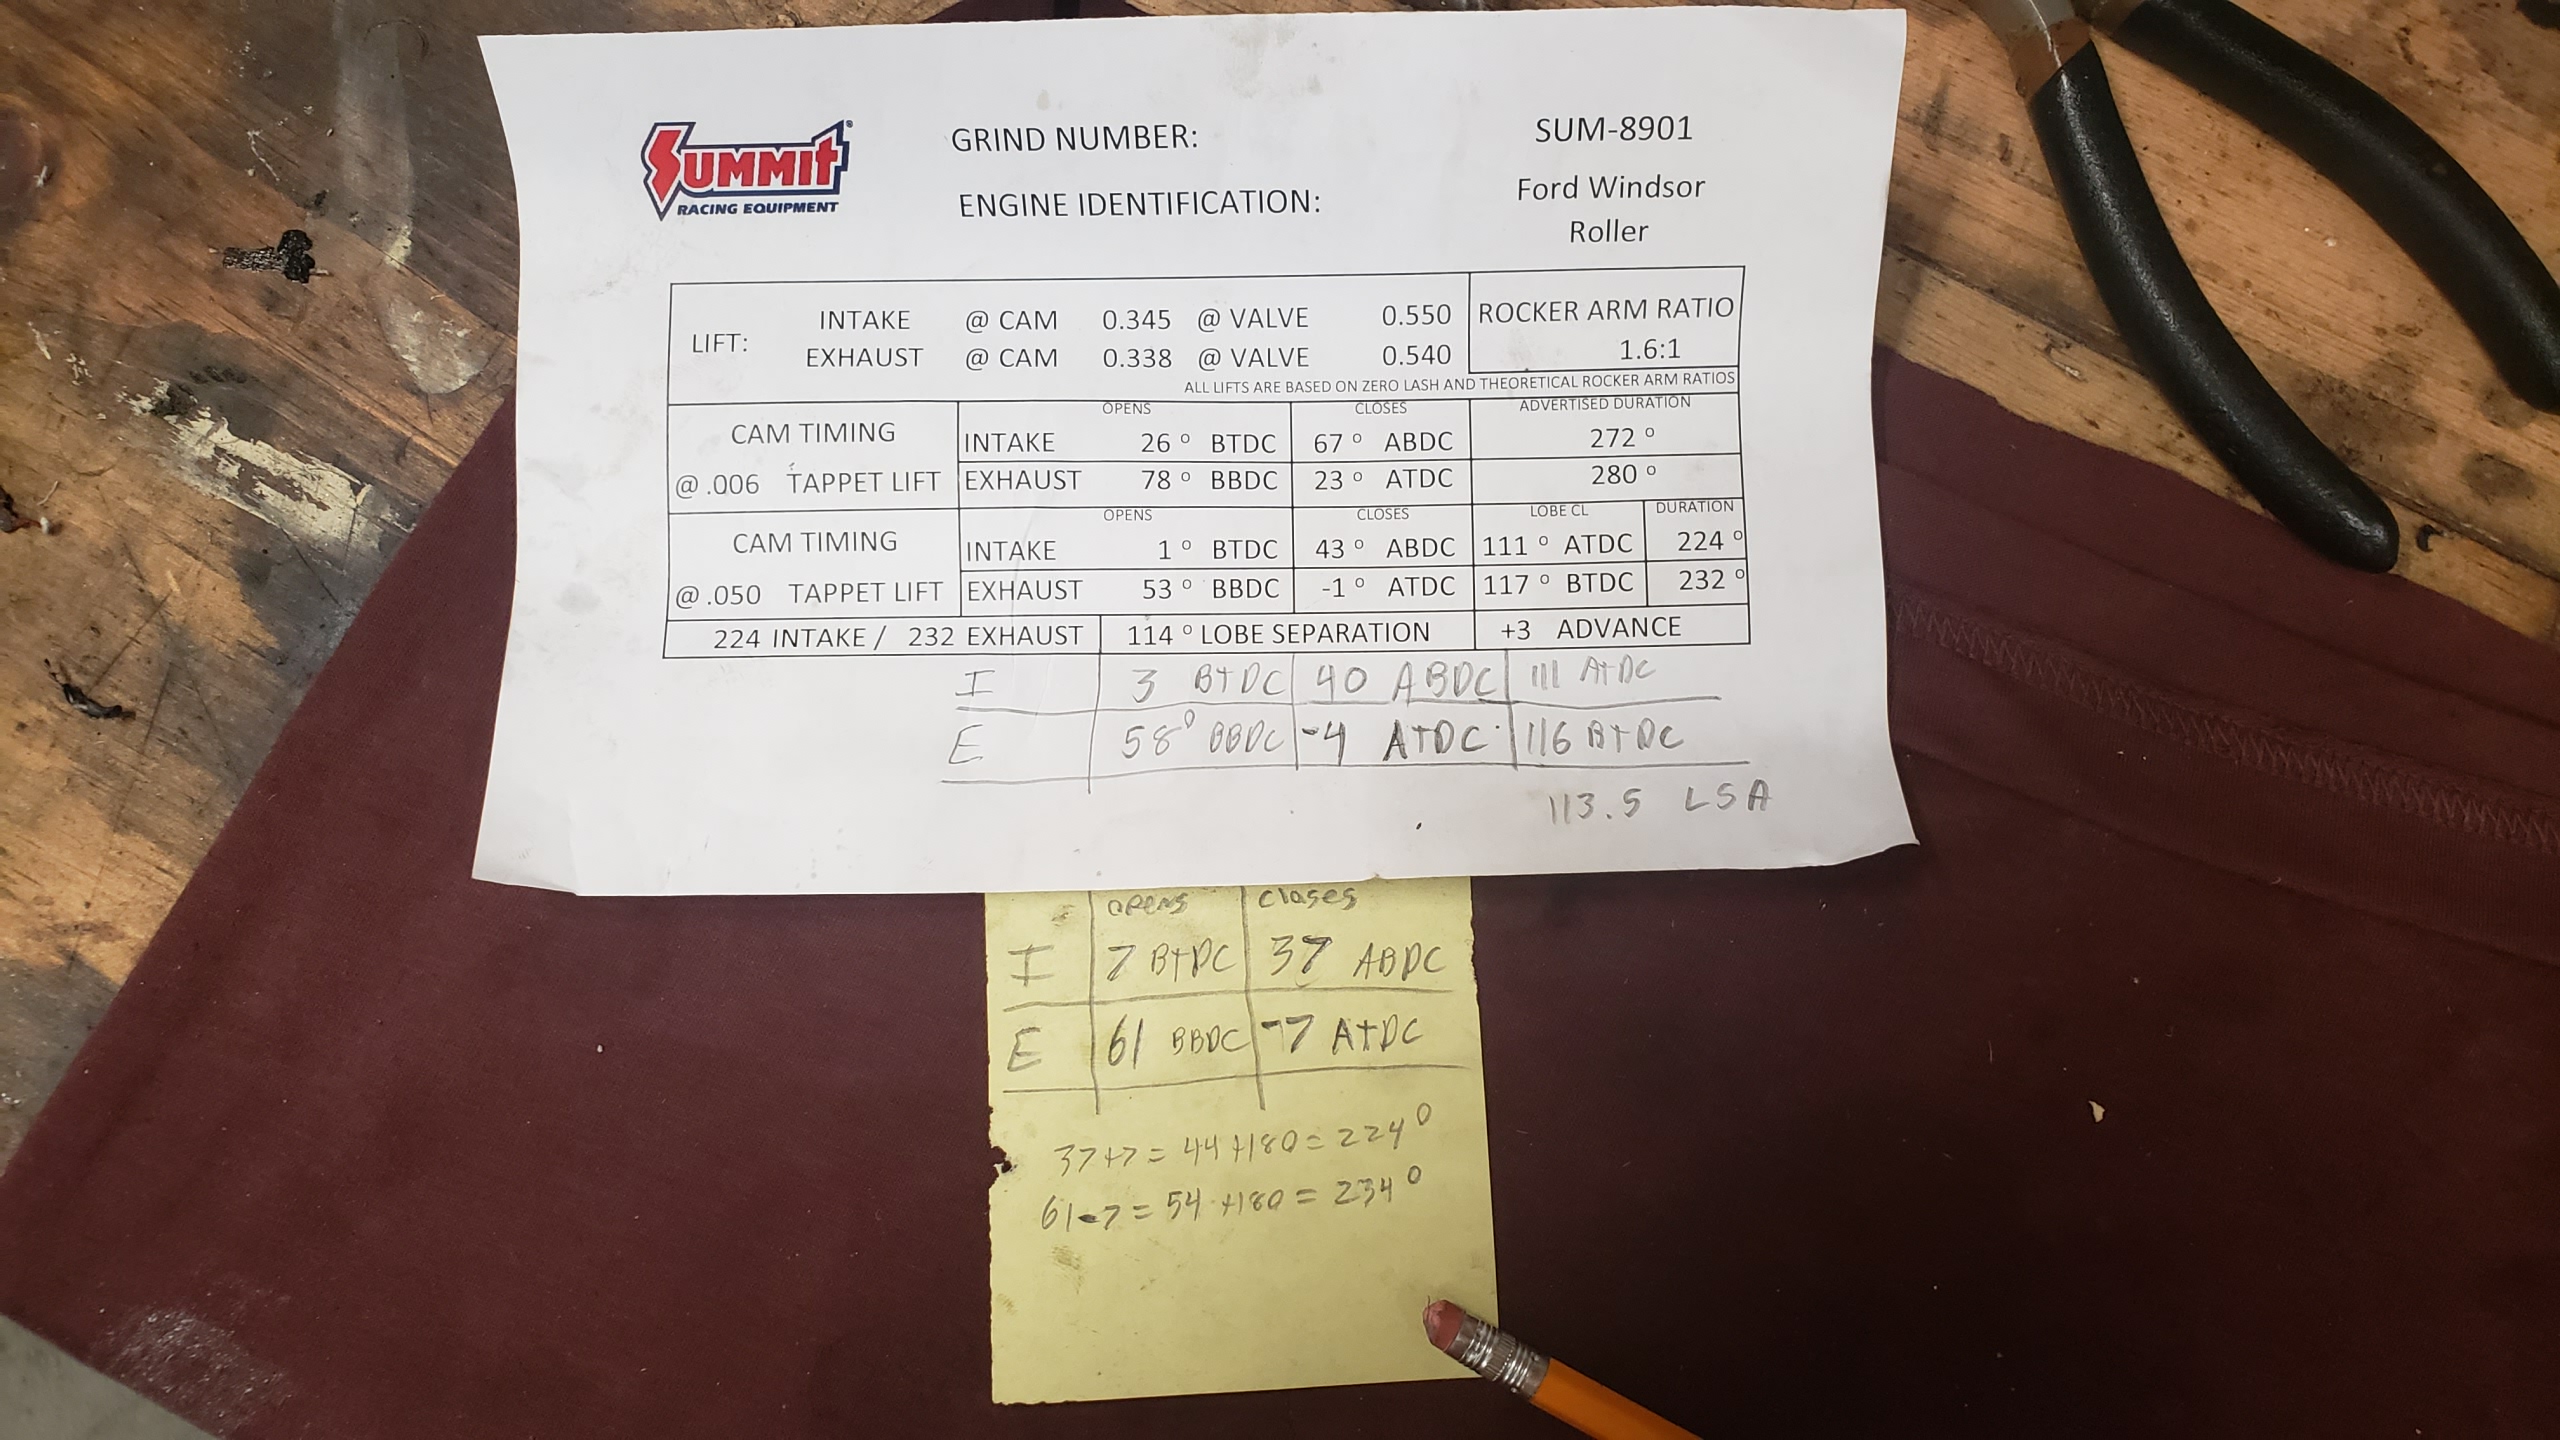 SUMMIT®
RACING EQUIPMENT
GRIND NUMBER: SUM-8901
ENGINE IDENTIFICATION: Ford Windsor
Roller
LIFT: INTAKE @ CAM 0.345 @ VALVE 0.550
EXHAUST @ CAM 0.338 @ VALVE 0.540
ROCKER ARM RATIO
1.6:1
ALL LIFTS ARE BASED ON ZERO LASH AND THEORETICAL ROCKER ARM RATIOS
OPENS CLOSES ADVERTISED DURATION
CAM TIMING INTAKE 26 ° BTDC 67 ° ABDC 272 °
@ .006 TAPPET LIFT EXHAUST 78 ° BBDC 23 ° ATDC 280 °
OPENS CLOSES LOBE CL DURATION
CAM TIMING INTAKE 1 ° BTDC 43 ° ABDC 111 ° ATDC 224 °
@ .050 TAPPET LIFT EXHAUST 53 ° BBDC -1 ° ATDC 117 ° BTDC 232 °
224 INTAKE / 232 EXHAUST 114 ° LOBE SEPARATION +3 ADVANCE
I 3 BTDC 40 ABDC 111 ATDC
E 58° BBDC -4 ATDC 116 BTDC
113.5 LSA
opens closes
I 7 BTDC 37 ABDC
E 61 BBDC -7 ATDC
37+7 = 44 +180 = 224°
61-7 = 54 +180 = 234°